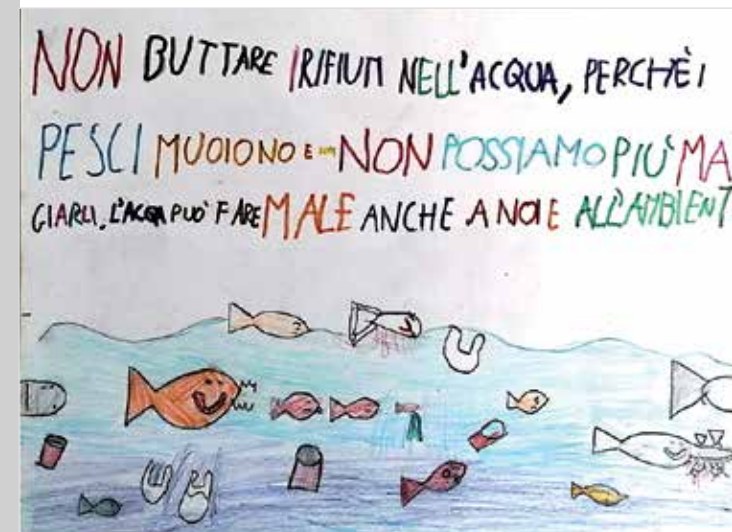 NON BUTTARE I RIFIUTI NELL'ACQUA, PERCHÈ I
PESCI MUOIONO E NON POSSIAMO PIÙ MA
GIARLI. L'ACQA PUÒ FARE MALE ANCHE A NOI E ALL'AMBIENT